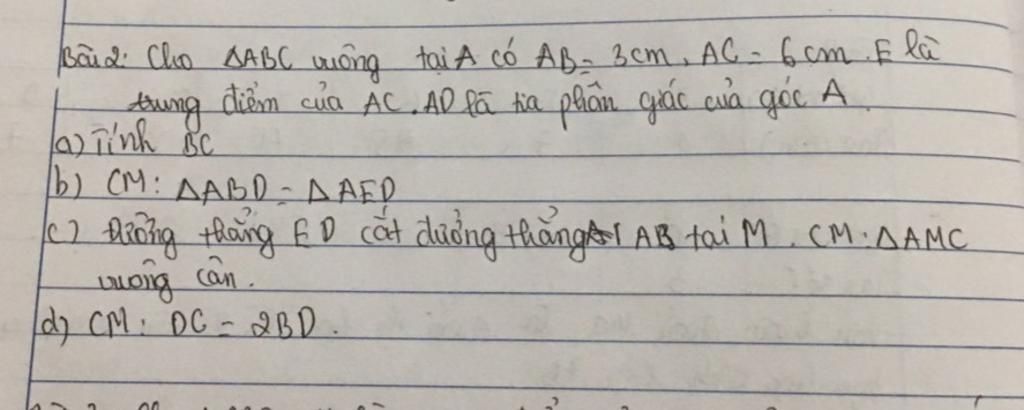 Bài 2: Cho ΔABC vuông tại A có AB = 3cm, AC = 6cm. E là
trung điểm của AC. AD là tia phân giác của góc A.
a) Tính BC
b) CM: ΔABD = ΔAED
c) Đường thẳng ED cắt đường thẳng AB tại M. CM: ΔAMC
vuông cân.
d) CM: DC = 2BD